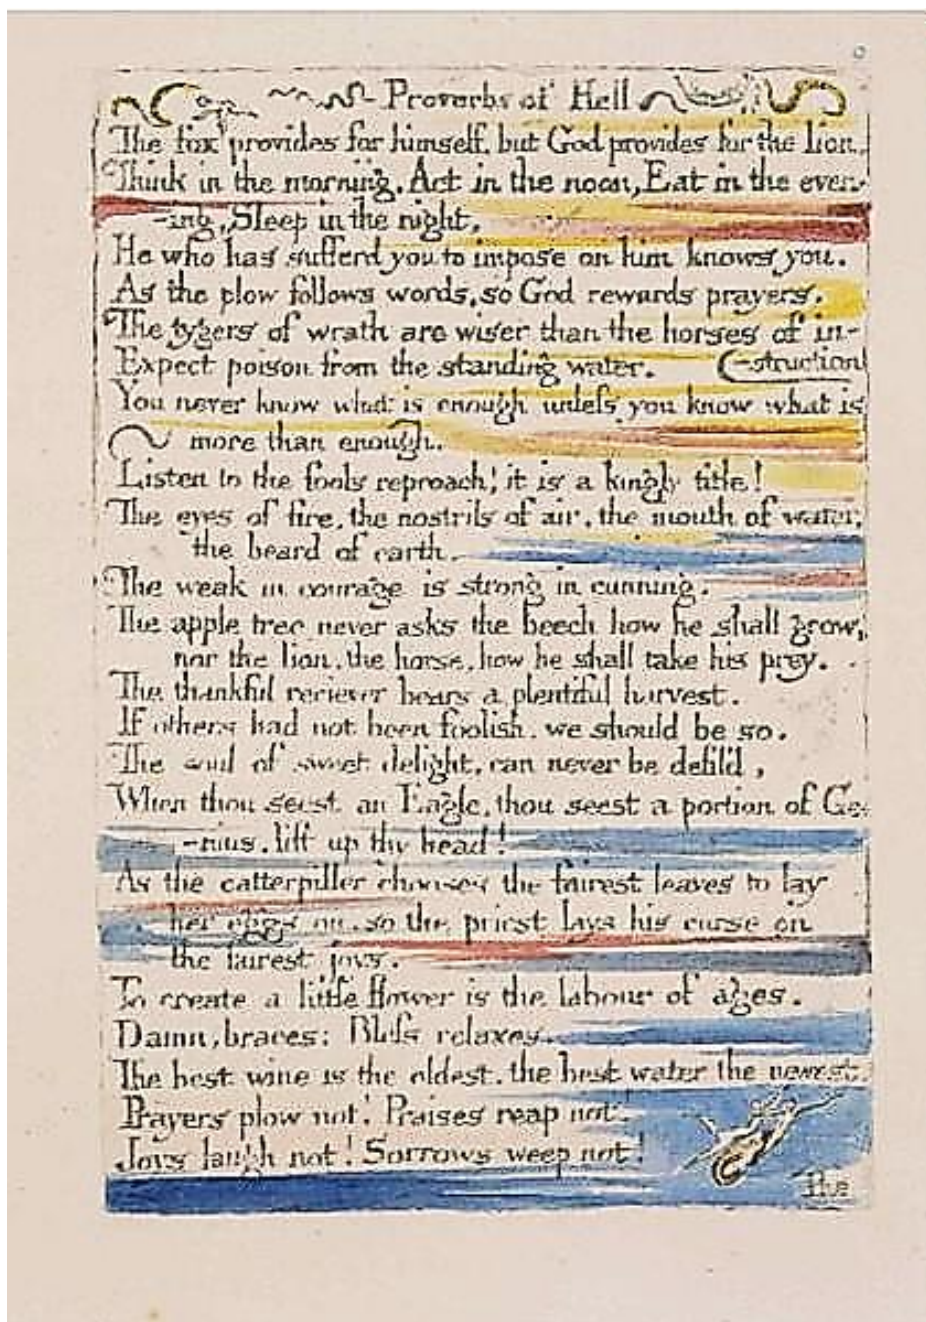 Proverbs of Hell
The fox provides for himself. but God provides for the lion.
Think in the morning, Act in the noon, Eat in the even-
-ing, Sleep in the night.
He who has sufferd you to impose on him knows you.
As the plow follows words, so God rewards prayers.
The tygers of wrath are wiser than the horses of in-
Expect poison from the standing water. (-struction
You never know what is enough unless you know what is
more than enough.
Listen to the fools reproach! it is a kingly title!
The eyes of fire, the nostrils of air, the mouth of water,
the beard of earth.
The weak in courage is strong in cunning.
The apple tree never asks the beech how he shall grow,
nor the lion, the horse, how he shall take his prey.
The thankful reciever bears a plentiful harvest.
If others had not been foolish, we should be so.
The soul of sweet delight, can never be defil'd,
When thou seest an Eagle, thou seest a portion of Ge-
-nius. lift up thy head!
As the catterpiller chooses the fairest leaves to lay
her eggs on, so the priest lays his curse on
the fairest joys.
To create a little flower is the labour of ages.
Damn, braces: Bless relaxes.
The best wine is the oldest, the best water the newest.
Prayers plow not! Praises reap not!
Joys laugh not! Sorrows weep not!
The